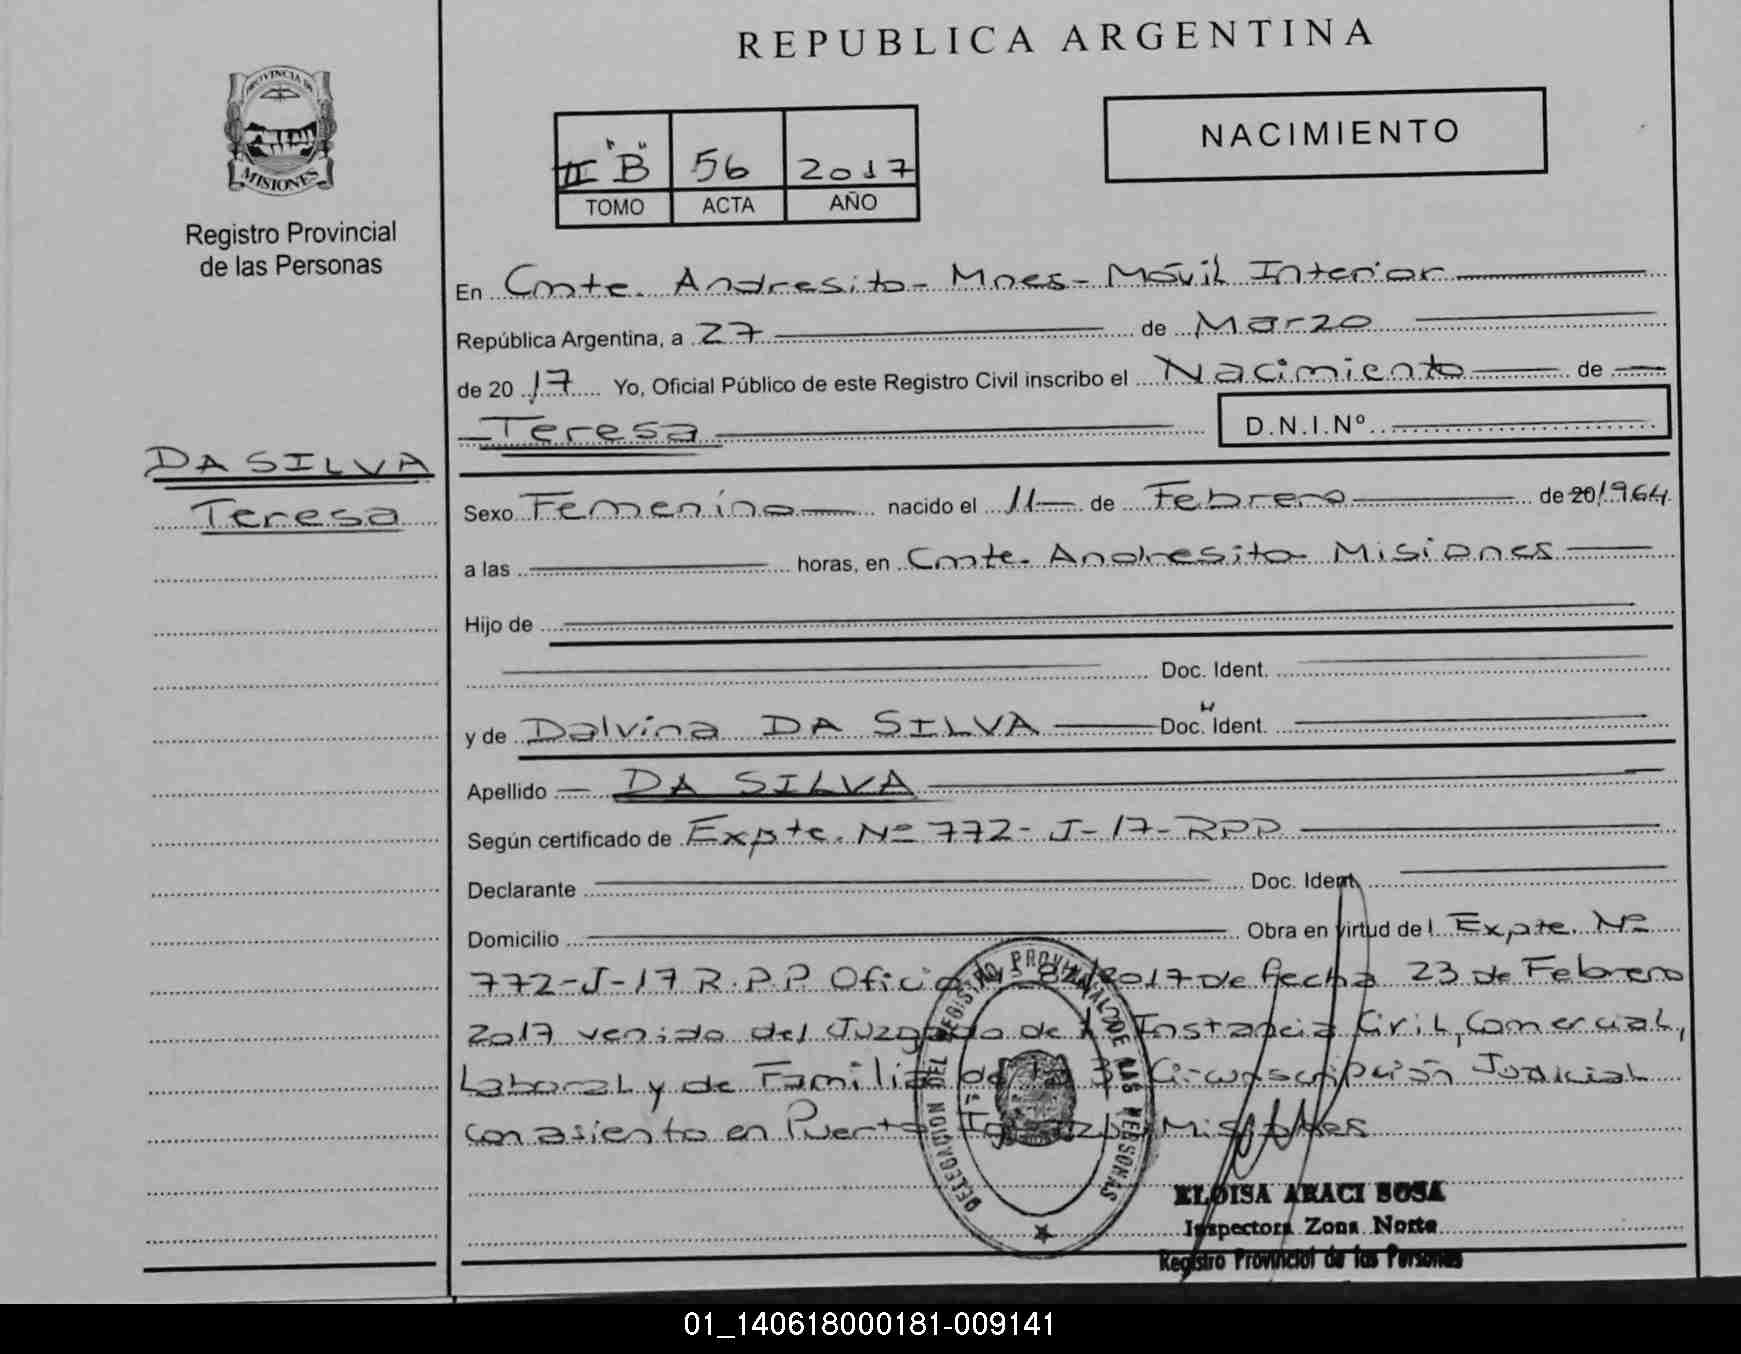 REPUBLICA ARGENTINA
PROVINCIA DE
MISIONES
Registro Provincial
de las Personas
II "B" 56 2017
TOMO ACTA AÑO
NACIMIENTO
En Cmte. Andresito - Mnes - Móvil Interior
República Argentina, a 27 de Marzo
de 20 17 Yo, Oficial Público de este Registro Civil inscribo el Nacimiento de
Teresa D.N.I.Nº
DA SILVA
Teresa
Sexo Femenino nacido el 11 de Febrero de 20 1964
a las horas, en Cmte. Andresito Misiones
Hijo de
Doc. Ident.
y de Dalvina DA SILVA Doc. Ident.
Apellido DA SILVA
Según certificado de Expte. Nº 772-J-17-RPP
Declarante Doc. Ident.
Domicilio Obra en virtud del Expte. Nº
772-J-17 R.P.P Oficio Nº 82/2017 de fecha 23 de Febrero
2017 venido del Juzgado de 1º Instancia Civil, Comercial,
Laboral y de Familia de la 3º Circunscripción Judicial
con asiento en Puerto Iguazú Misiones
DELEGACION DEL REGISTRO PROVINCIAL DE LAS PERSONAS
ELOISA ARACI SOSA
Inspectora Zona Norte
Registro Provincial de las Personas
01_140618000181-009141